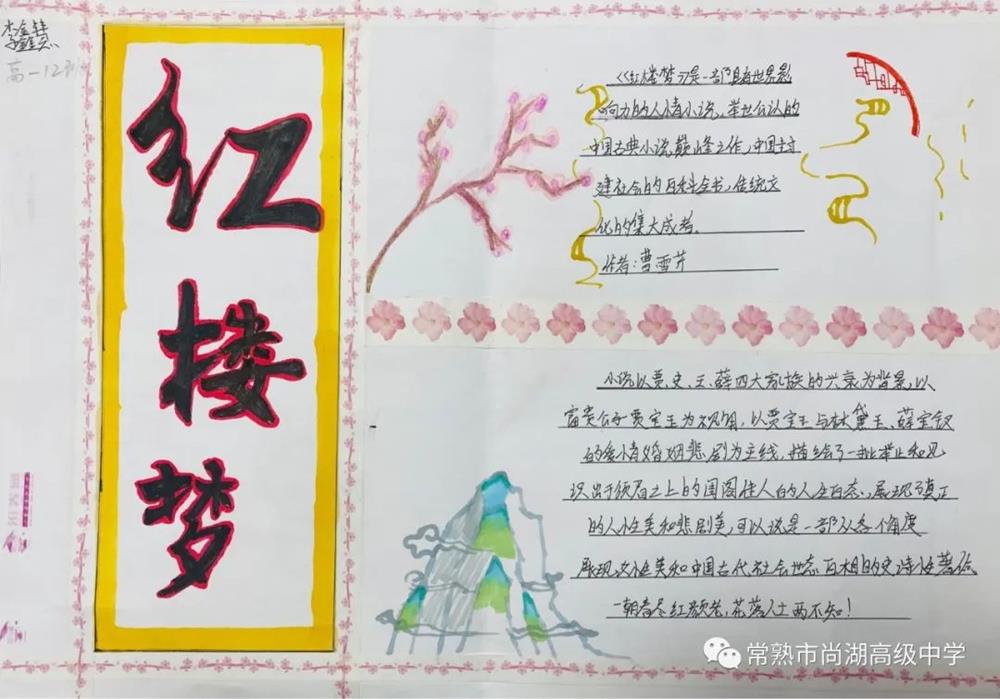 高一12
红
楼
梦
《红楼梦》是一部具有世界影
响力的人情小说，举世公认的
中国古典小说巅峰之作，中国封
建社会的百科全书，传统文
化的集大成者。
作者：曹雪芹
小说以贾、史、王、薛四大家族的兴衰为背景，以
富贵公子贾宝玉为视角，以贾宝玉与林黛玉、薛宝钗
的爱情婚姻悲剧为主线，描绘了一批举止和见
识出于须眉之上的闺阁佳人的人生百态，展现了真正
的人性美和悲剧美，可以说是一部从各个角度
展现女性美和中国古代社会世态百相的史诗性著作
一朝春尽红颜老，花落人亡两不知！
常熟市尚湖高级中学